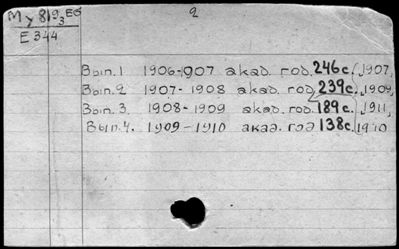 Му 819/3 ЕС 2
Е 344
Вып.1 1906-1907 акад. год. 246с. 1907,
Вып.2 1907-1908 акад. год. 239с. 1909,
Вып.3. 1908-1909 акад. год. 189с. 1911,
Вып.4. 1909-1910 акад. год 138с. 1910